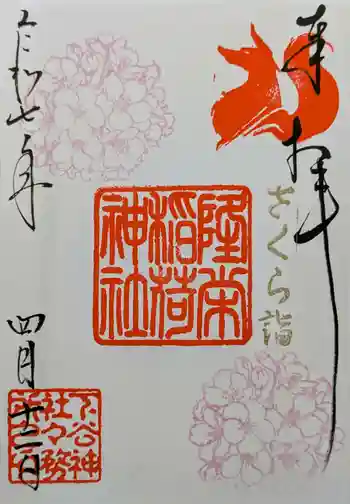 奉拝
さくら詣
隆栄
稲荷
神社
令和七年
四月十二日
下谷神
社々務
所印